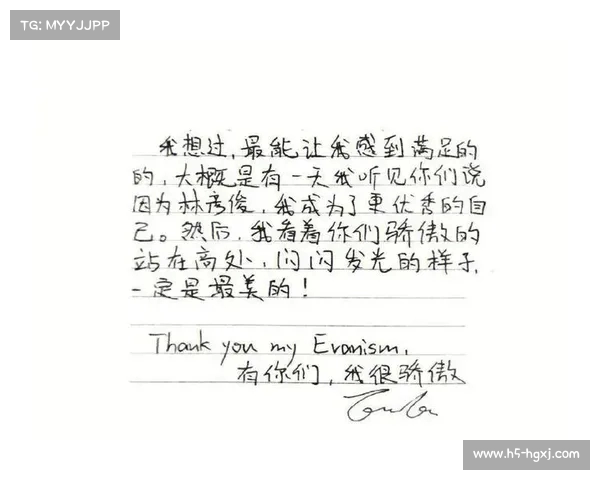 TG: MYYJJPP
我想过,最能让我感到满足的
的,大概是有一天我听见你们说
因为林彦俊,我成为了更优秀的自
己。然后,我看着你们骄傲的
站在高处,闪闪发光的样子,
一定是最美的!
Thank you my Evanism.
有你们,我很骄傲
www.h5-hgxj.com